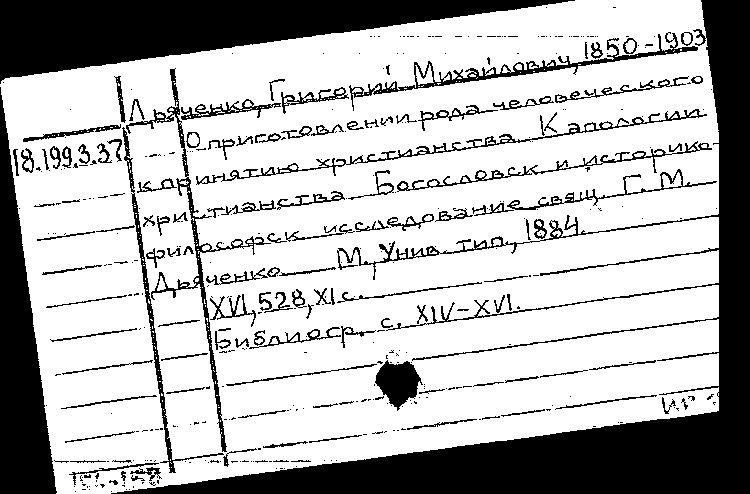 Дьяченко, Григорий Михайлович, 1850-1903
18.199.3.37
О приготовлении рода человеческого
к принятию христианства. К апологии
христианства. Богословск. и историко-
философск. исследование свящ. Г. М.
Дьяченко. М., Унив. тип., 1884.
XVI, 528, XI с.
Библиогр. с. XIV-XVI.